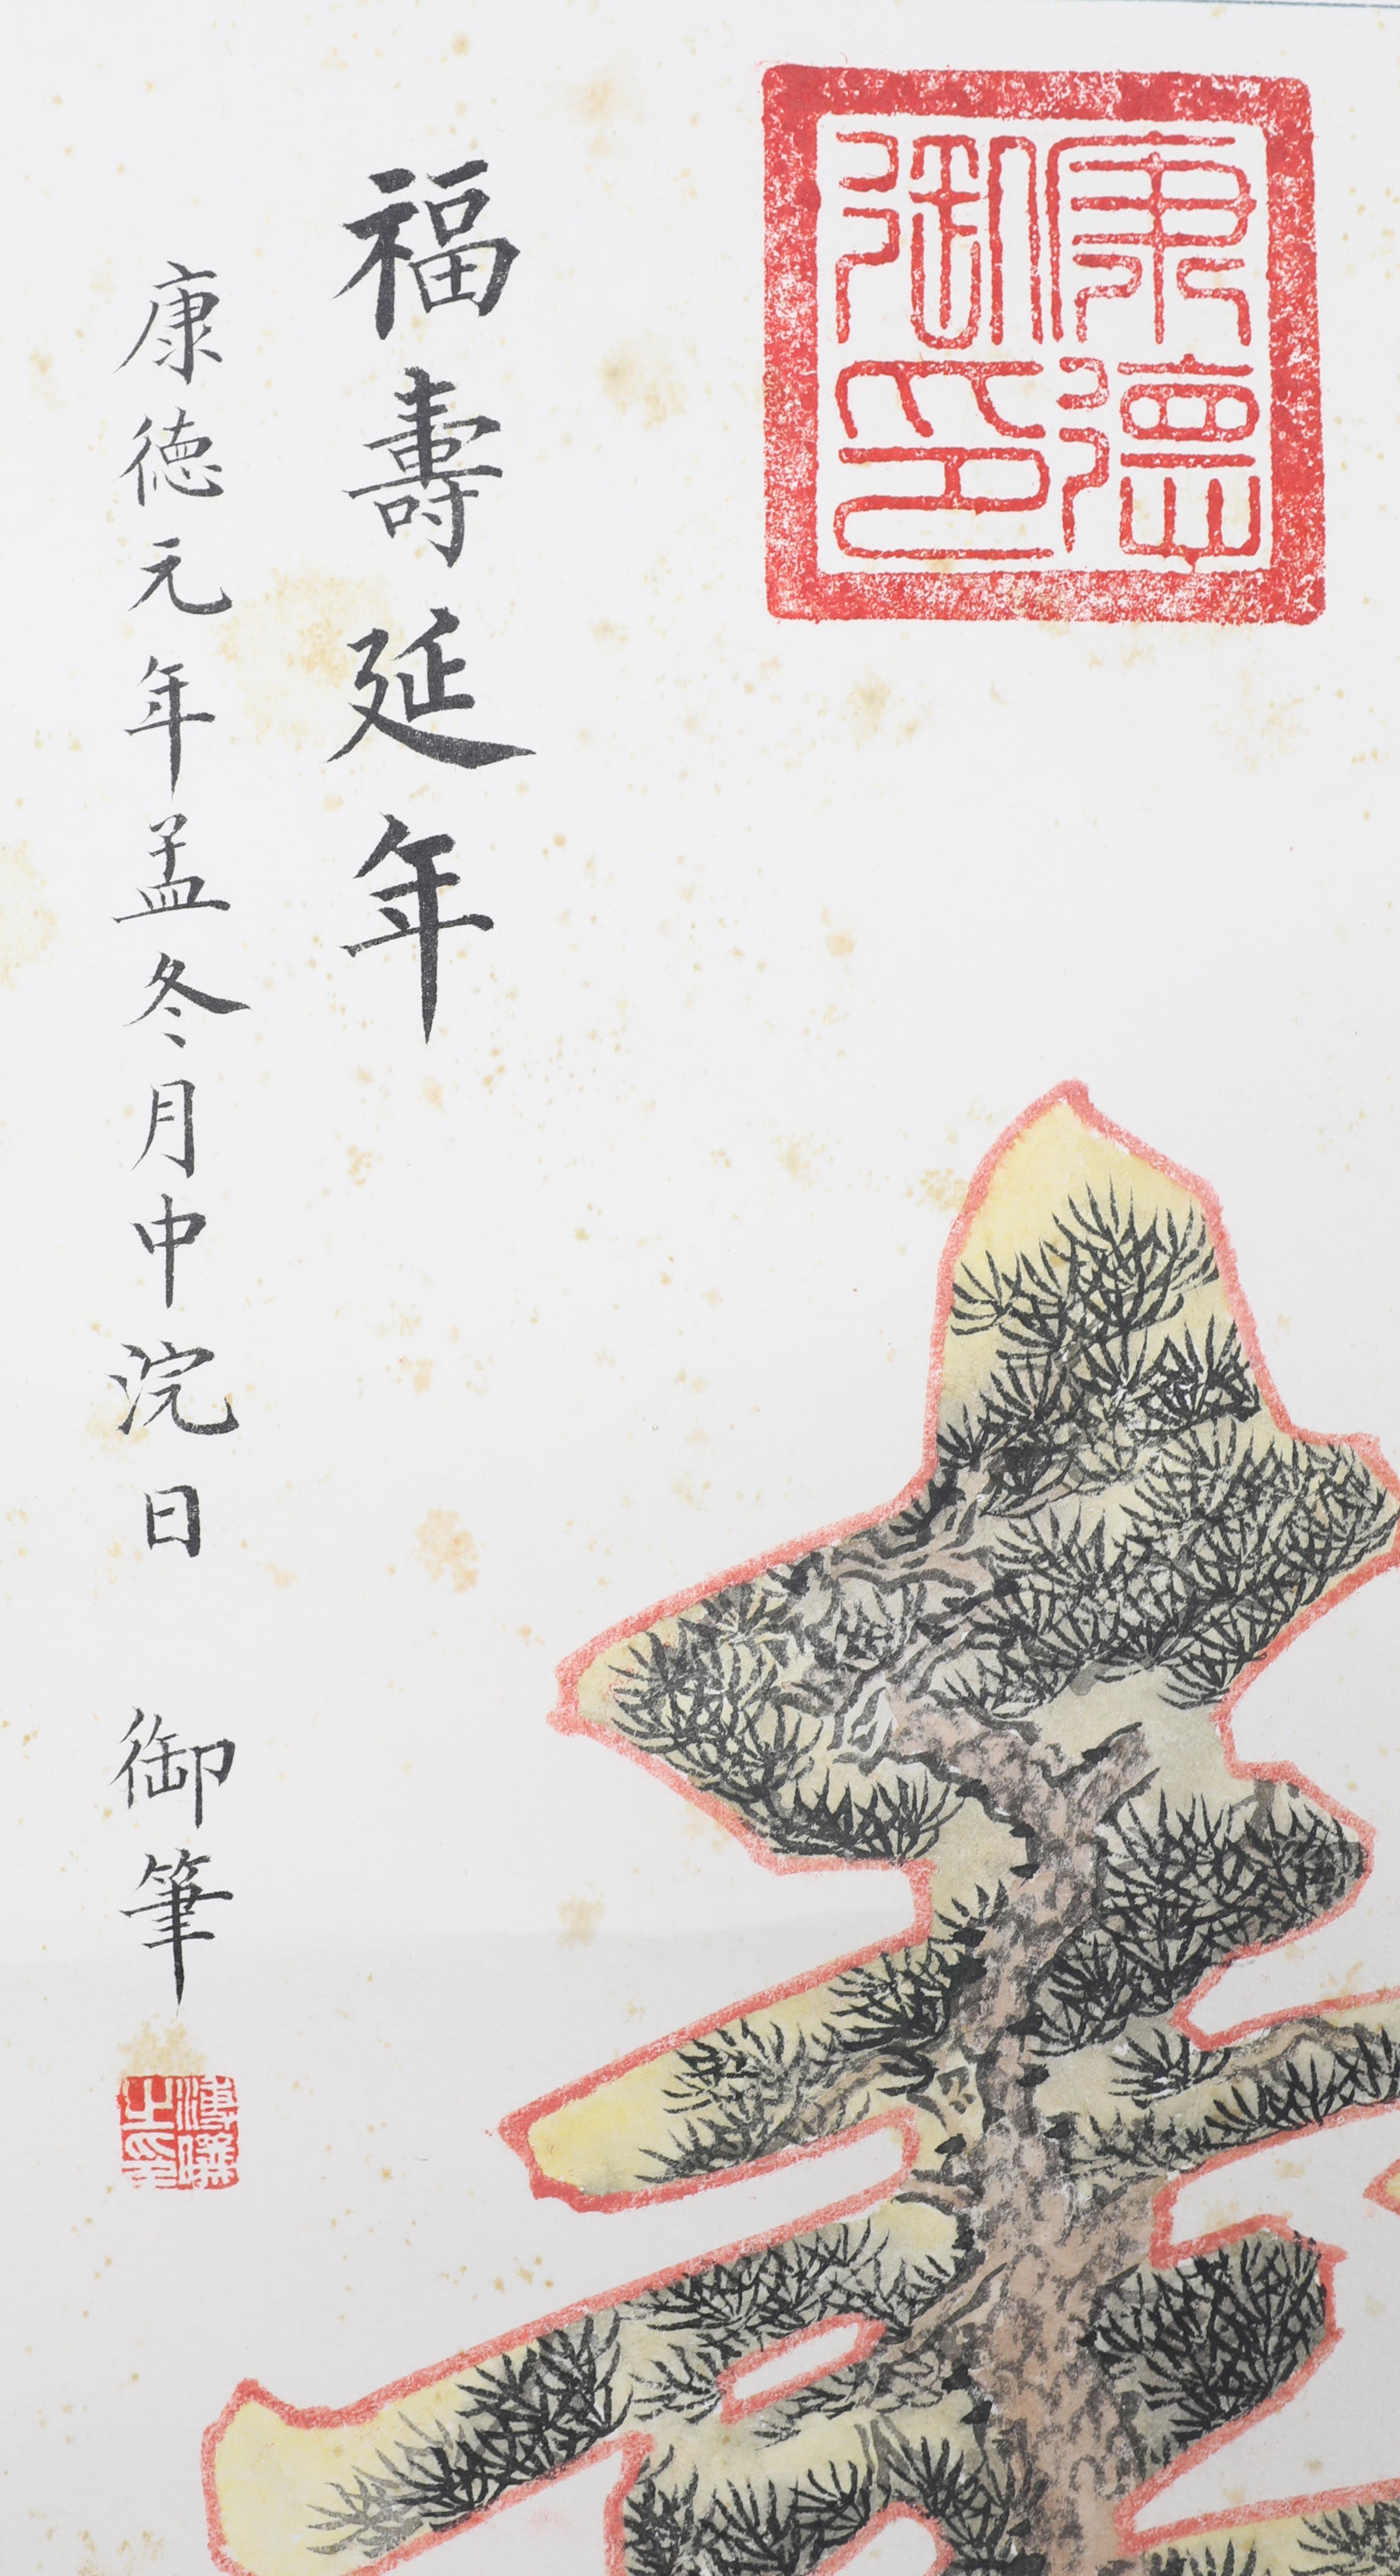 康德御印
福壽延年
康德元年孟冬月中浣日 御筆
溥儀之印